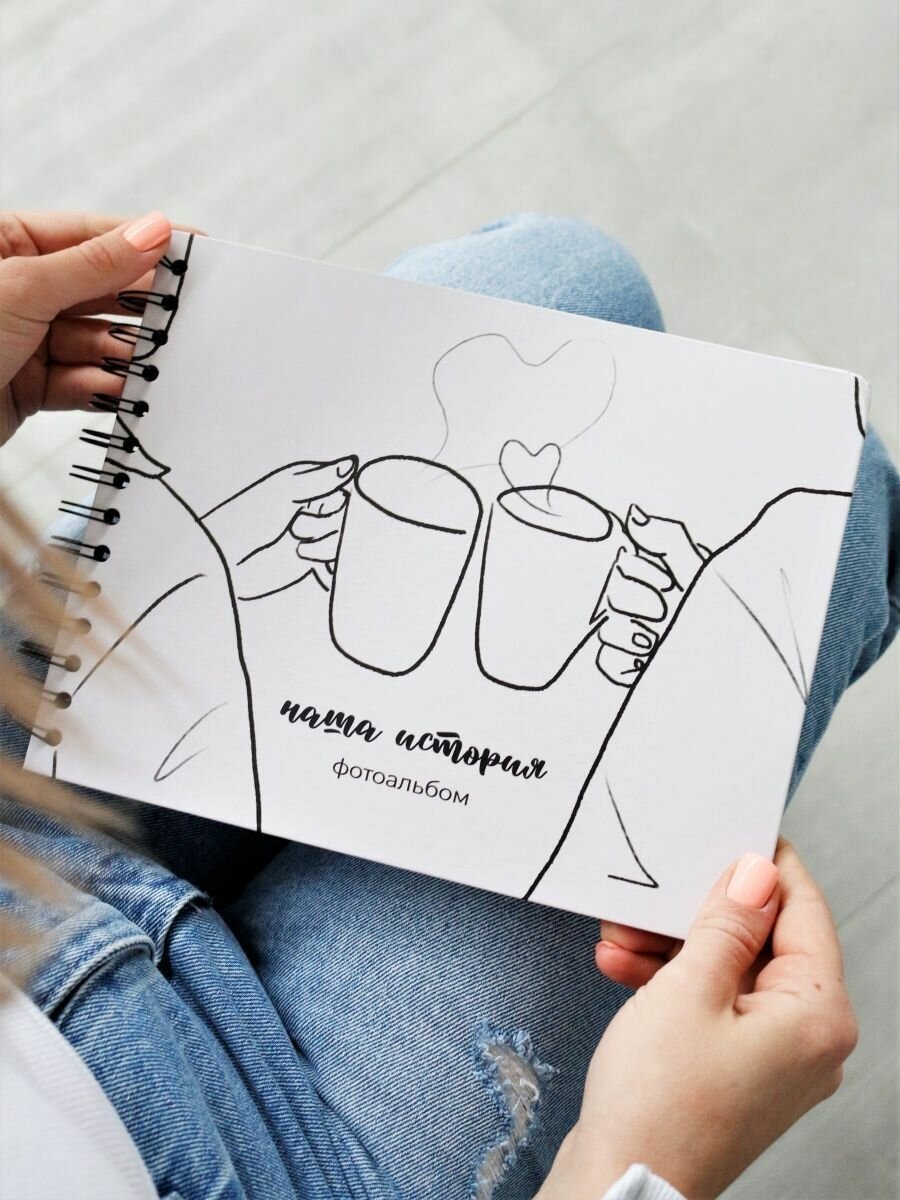 наша история
фотоальбом